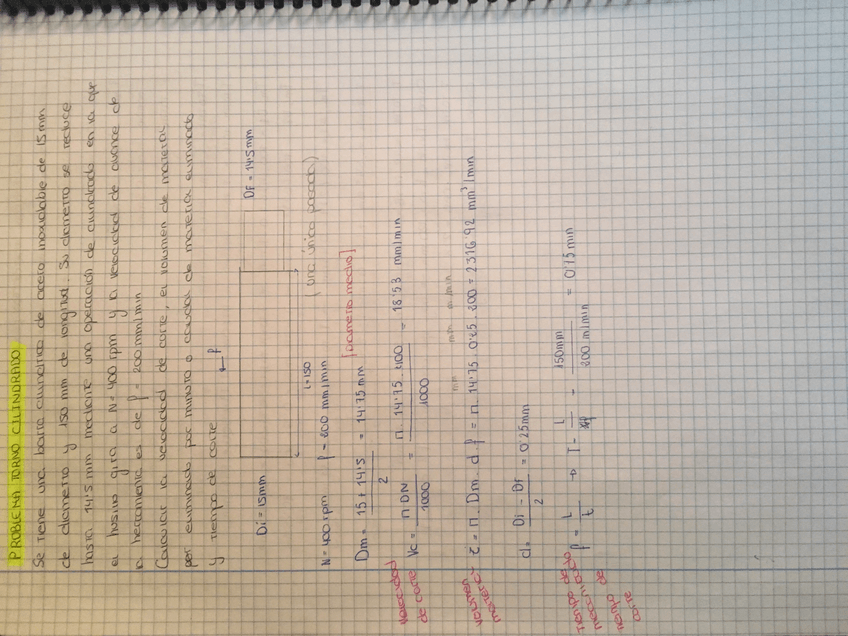 PROBLEMA TORNO CILINDRADO
Se tiene una barra cilíndrica de acero inoxidable de 15 mm
de diámetro y 150 mm de longitud. Su diámetro se reduce
hasta 14'5 mm mediante una operación de cilindrado en la que
el husillo gira a N = 400 rpm y la velocidad de avance de
la herramienta es de f = 200 mm/min
Calcular la velocidad de corte, el volumen de material
eliminado por minuto o caudal de material eliminado
y tiempo de corte
← f
Di = 15mm
Df = 14'5mm
L=150
(una única pasada)
N = 400 rpm f = 200 mm/min
Dm = 15 + 14'5 / 2 = 14'75 mm [diámetro medio]
velocidad de corte Vc = π D N / 1000 = π · 14'75 · 400 / 1000 = 18'53 mm/min
mm mm m/min
volumen material - z = π · Dm · d · f = π · 14'75 · 0'25 · 200 = 2316'92 mm³/min
d = Di - Df / 2 = 0'25mm
Tiempo de mecanizado tiempo de corte f = L / t → T = L / f = 150mm / 200 m/min = 0'75 min